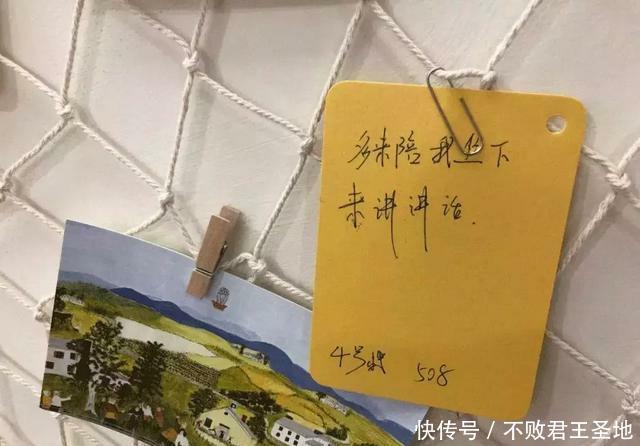 多来陪我坐下
来讲讲话.
4号楼 508
快传号 / 不败君王圣地